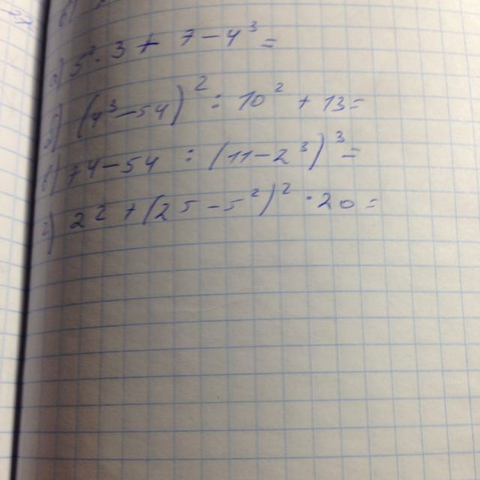 а) 5² · 3 + 7 - 4³ =
б) (4³ - 54)² : 10² + 13 =
в) 74 - 54 : (11 - 2³)³ =
г) 22 + (25 - 5²)² · 20 =